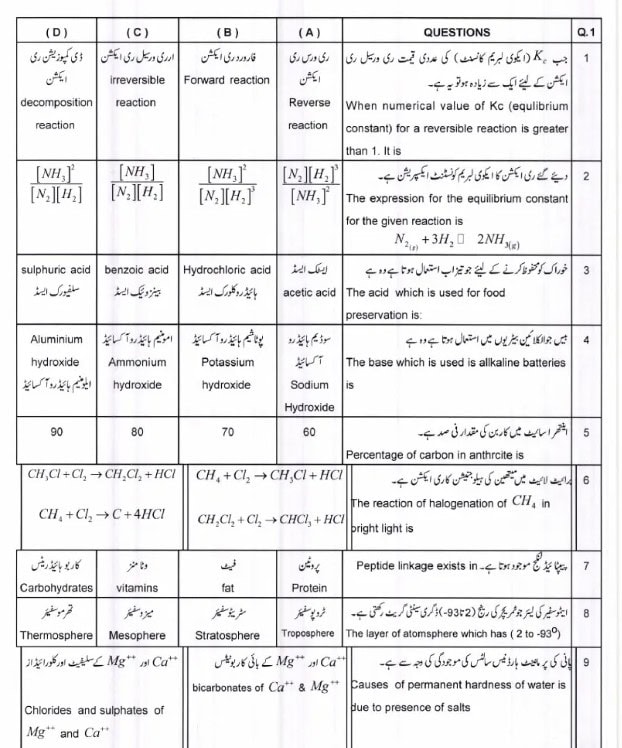 Q.1
QUESTIONS
( A )
( B )
( C )
( D )
1
جب Kc (ایکوی لبریم کانسٹنٹ) کی عددی قیمت ری ورسیبل ری
ایکشن کے لیئے ایک سے زیادہ ہو تو یہ ہے۔
When numerical value of Kc (equlibrium
constant) for a reversible reaction is greater
than 1. It is
ری ورس ری
ایکشن
Reverse
reaction
فارورڈ ری ایکشن
Forward reaction
اری ورسیبل ری ایکشن
irreversible
reaction
ڈی کمپوزیشن ری
ایکشن
decomposition
reaction
2
دیئے گئے ری ایکشن کا ایکوی لبریم کونسٹنٹ ایکسپریشن ہے۔
The expression for the equilibrium constant
for the given reaction is
N₂₍g₎ + 3H₂ □ 2NH₃₍g₎
[N₂][H₂]³ / [NH₃]²
[NH₃]² / [N₂][H₂]³
[NH₃] / [N₂][H₂]
[NH₃]² / [N₂][H₂]
3
خوراک کو محفوظ کرنے کے لیئے جو تیزاب استعمال ہوتا ہے وہ ہے
The acid which is used for food
preservation is:
ایسٹک ایسڈ
acetic acid
Hydrochloric acid
ہائیڈروکلورک ایسڈ
benzoic acid
بینزوئیک ایسڈ
sulphuric acid
سلفیورک ایسڈ
4
بیس جو الکلائین بیٹریوں میں استعمال ہوتا ہے وہ ہے
The base which is used is allkaline batteries
is
سوڈیم ہائیڈرو
آکسائیڈ
Sodium
Hydroxide
پوٹاشیم ہائیڈروآکسائیڈ
Potassium
hydroxide
امونیم ہائیڈروآکسائیڈ
Ammonium
hydroxide
Aluminium
hydroxide
ایلومینیم ہائیڈروآکسائیڈ
5
اینتھراسائیٹ میں کاربن کی مقدار فی صد ہے۔
Percentage of carbon in anthrcite is
60
70
80
90
6
برائیٹ لائیٹ میں میتھین کی ہیلوجنیشن کا ری ایکشن ہے۔
The reaction of halogenation of CH₄ in
bright light is
CH₄ + Cl₂ → CH₃Cl + HCl
CH₂Cl₂ + Cl₂ → CHCl₃ + HCl
CH₃Cl + Cl₂ → CH₂Cl₂ + HCl
CH₄ + Cl₂ → C + 4HCl
7
پیپٹائیڈ لنکیج موجود ہوتا ہے۔ Peptide linkage exists in
پروٹین
Protein
فیٹ
fat
وٹامنز
vitamins
کاربوہائیڈریٹس
Carbohydrates
8
ایٹموسفیر کی لیئر جو ٹمپریچر کی رینج (2 تا 93-) ڈگری سینٹی گریٹ رکھتی ہے۔
The layer of atomsphere which has ( 2 to -93⁰)
ٹروپوسفیئر
Troposphere
سٹریٹوسفیئر
Stratosphere
میزوسفیئر
Mesophere
تھرموسفیئر
Thermosphere
9
پانی کی پرماننٹ ہارڈنیس سالٹس کی موجودگی کی وجہ سے ہے۔
Causes of permanent hardness of water is
due to presence of salts
Ca⁺⁺ اور Mg⁺⁺ کے بائی کاربونیٹس
bicarbonates of Ca⁺⁺ & Mg⁺⁺
Ca⁺⁺ اور Mg⁺⁺ کے سلفیٹ اور کلورائیڈز
Chlorides and sulphates of
Mg⁺⁺ and Ca⁺⁺